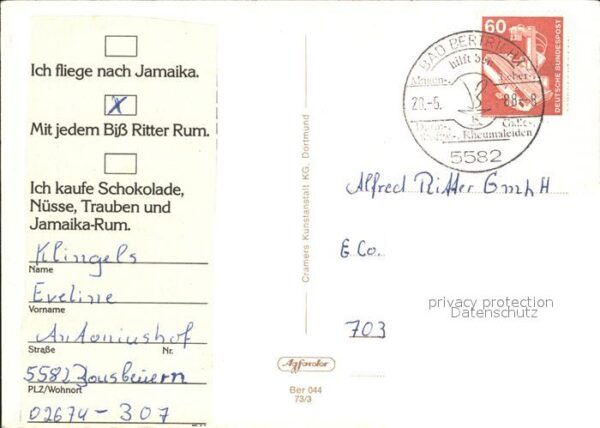 Ich fliege nach Jamaika.
X
Mit jedem Biß Ritter Rum.
Ich kaufe Schokolade,
Nüsse, Trauben und
Jamaika-Rum.
Klingels
Name
Eveline
Vorname
Antoniushof
Straße Nr.
5582
PLZ/Wohnort
02674-307
Cramers Kunstanstalt KG, Dortmund
Agfacolor
Ber 044
73/3
60
DEUTSCHE BUNDESPOST
BAD BERTRICH
hilft bei
Magen-, Leber-,
20.-5. 88.-8
Darm-, Galle-,
Rheumaleiden
5582
Alfred Ritter GmbH
& Co.
703
privacy protection
Datenschutz